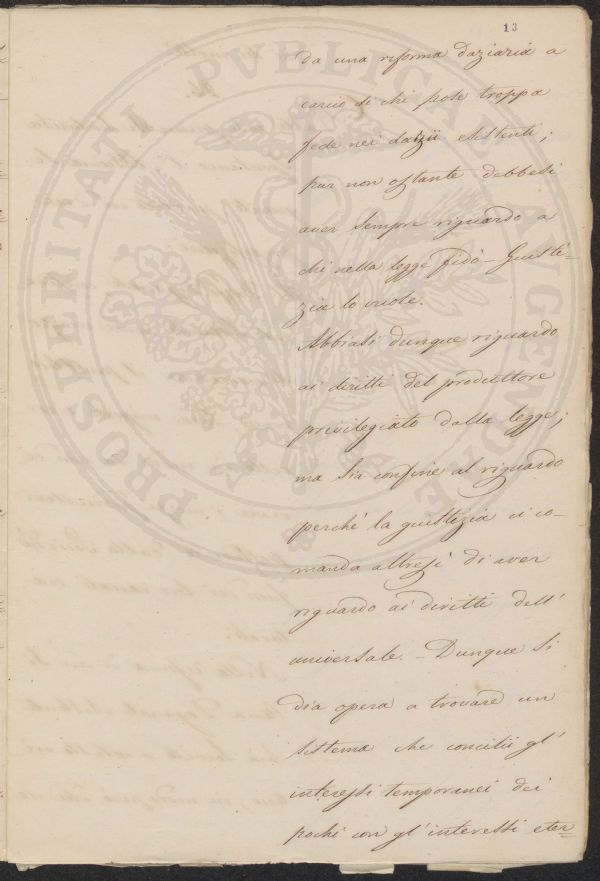 13
da una riforma daziaria a
carico di chi pose troppa
fede nei dazii esistenti;
pur non ostante debbesi
aver sempre riguardo a
chi nella legge fidò - Giusti-
zia lo vuole.
Abbiasi dunque riguardo
ai diritti del produttore
privilegiato dalla legge;
ma sia confine al riguardo
perchè la giustizia ci co-
manda altresì di aver
riguardo ai diritti dell'
universale. - Dunque si
dia opera a trovare un
sistema che concilii gl'
interessi temporanei dei
pochi con gl' interessi eter=
PROSPERITATI PVBLICAE AVGENDAE